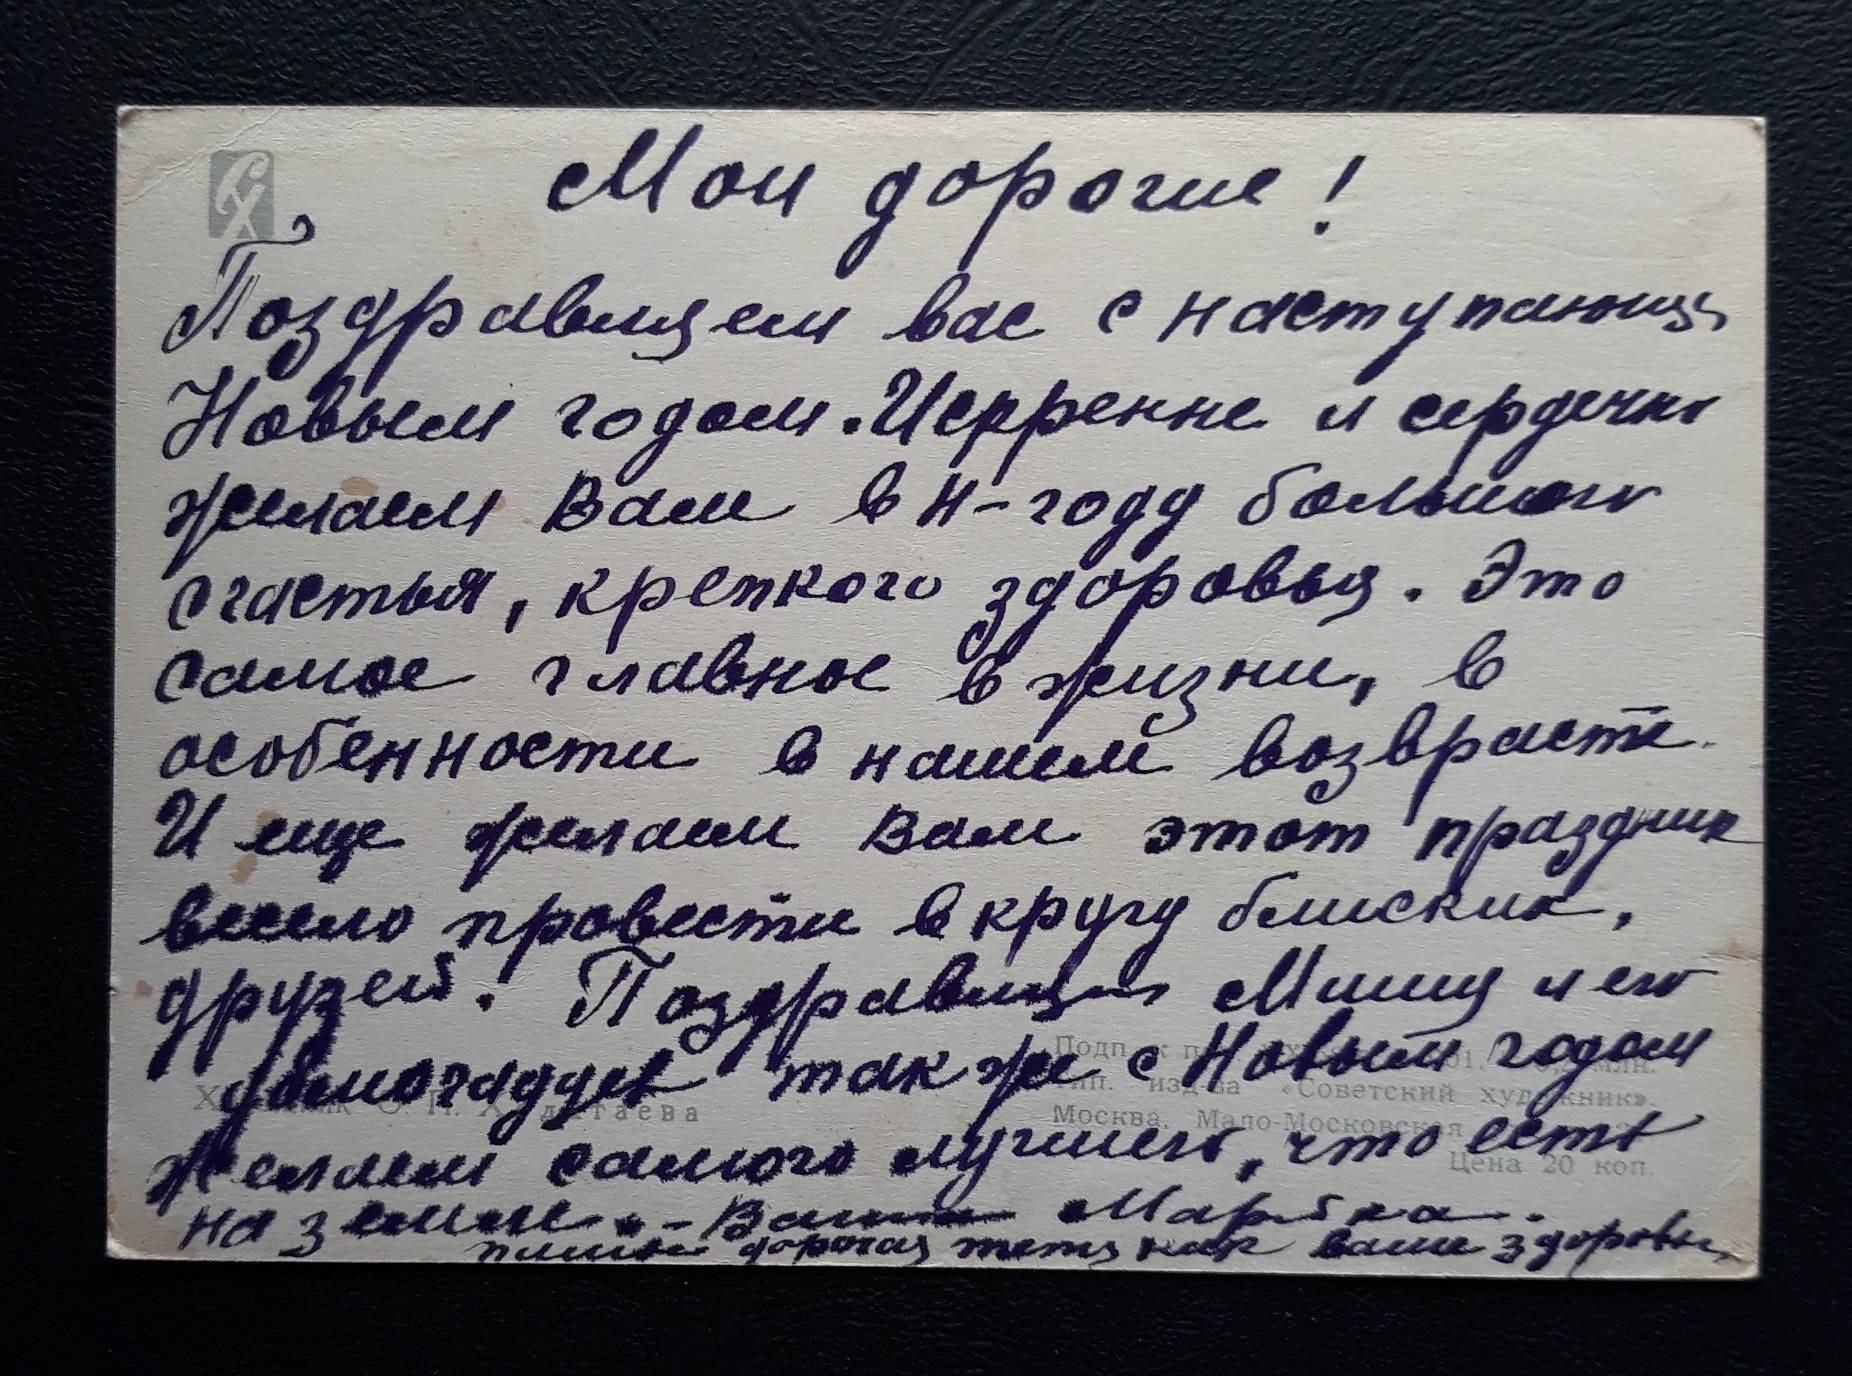 СХ
Мои дорогие!
Поздравляем вас с наступающ
Новым годом. Искренне и сердечно
желаем Вам в Н-году большого
счастья, крепкого здоровья. Это
самое главное в жизни, в
особенности в нашем возврасте.
И еще желаем Вам этот праздник
весело провести в кругу блиских,
друзей. Поздравляем Мишу и его
так же с Новым годом
Желаем самого лучшего, что есть
на земле. - Ваши
дорогая тетя как ваше здоровье
Подп. к п
Тип. изд-ва «Советский художник».
Москва, Мало-Московская
Цена 20 коп.